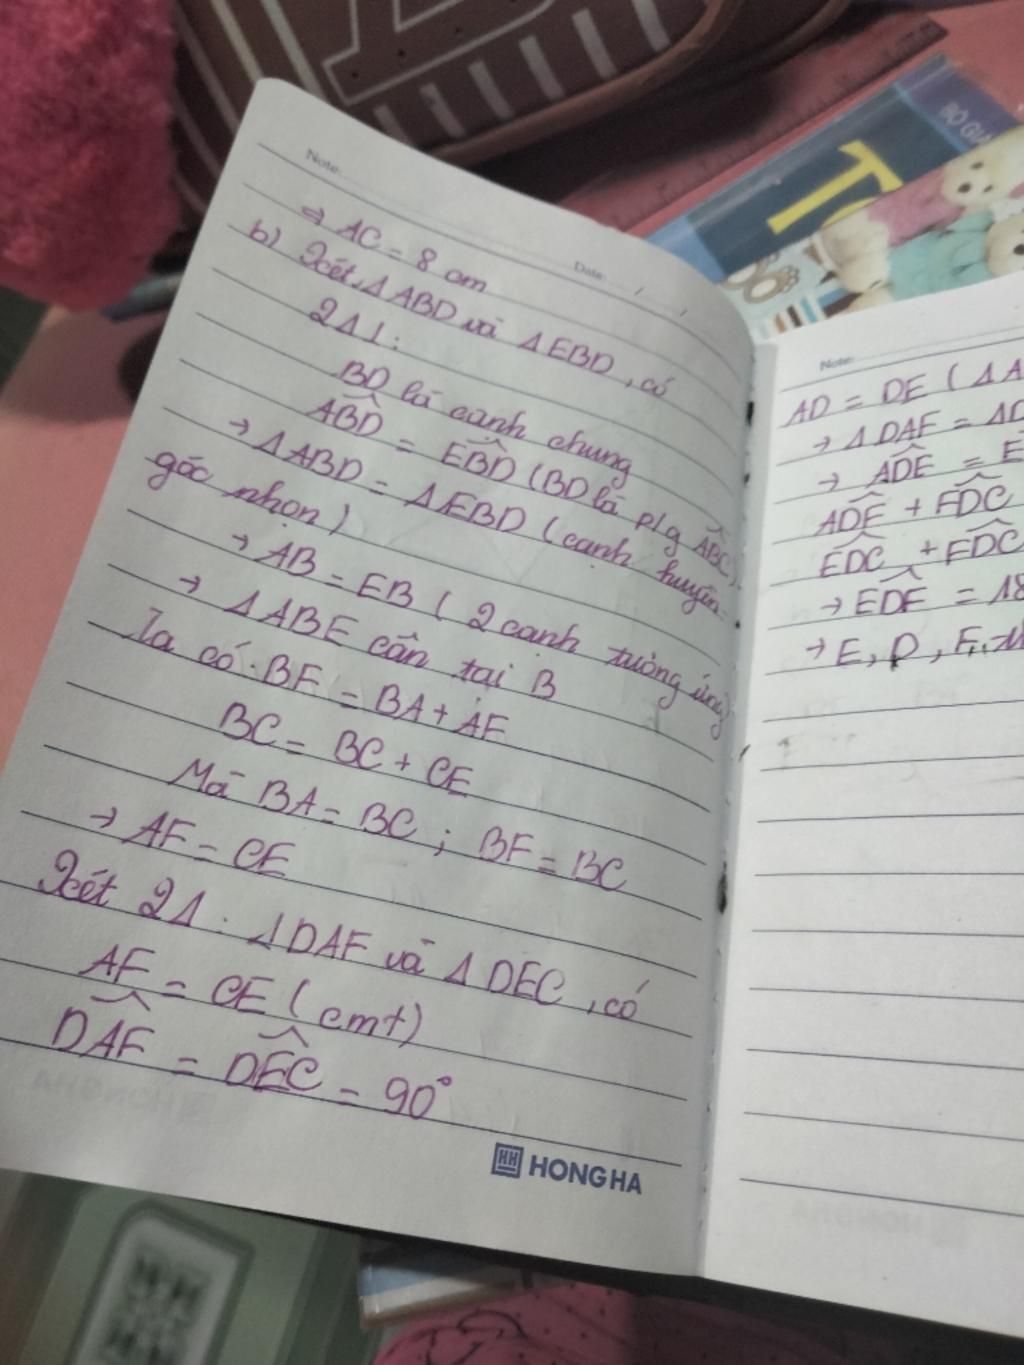 Note:
Date: / /
⇒ AC = 8 cm
b) Xét ΔABD và ΔEBD, có
2Δ1:
BD là cạnh chung
ABD = EBD (BD là p/g ABC)
→ ΔABD = ΔEBD (cạnh huyền-
góc nhọn)
→ AB = EB (2 cạnh tương ứng)
→ ΔABE cân tại B
Ta có: BF = BA + AF
BC = BC + CE
Mà BA = BC ; BF = BC
→ AF = CE
Xét 2Δ: ΔDAF và ΔDEC, có
AF = CE (cmt)
DAF = DEC = 90°
HH HONG HA
Note:
AD = DE (ΔA
→ ΔDAF = ΔD
→ ADE = E
ADE + FDC
EDC + FDC
→ EDF = 18
→ E, D, F
BỘ GI